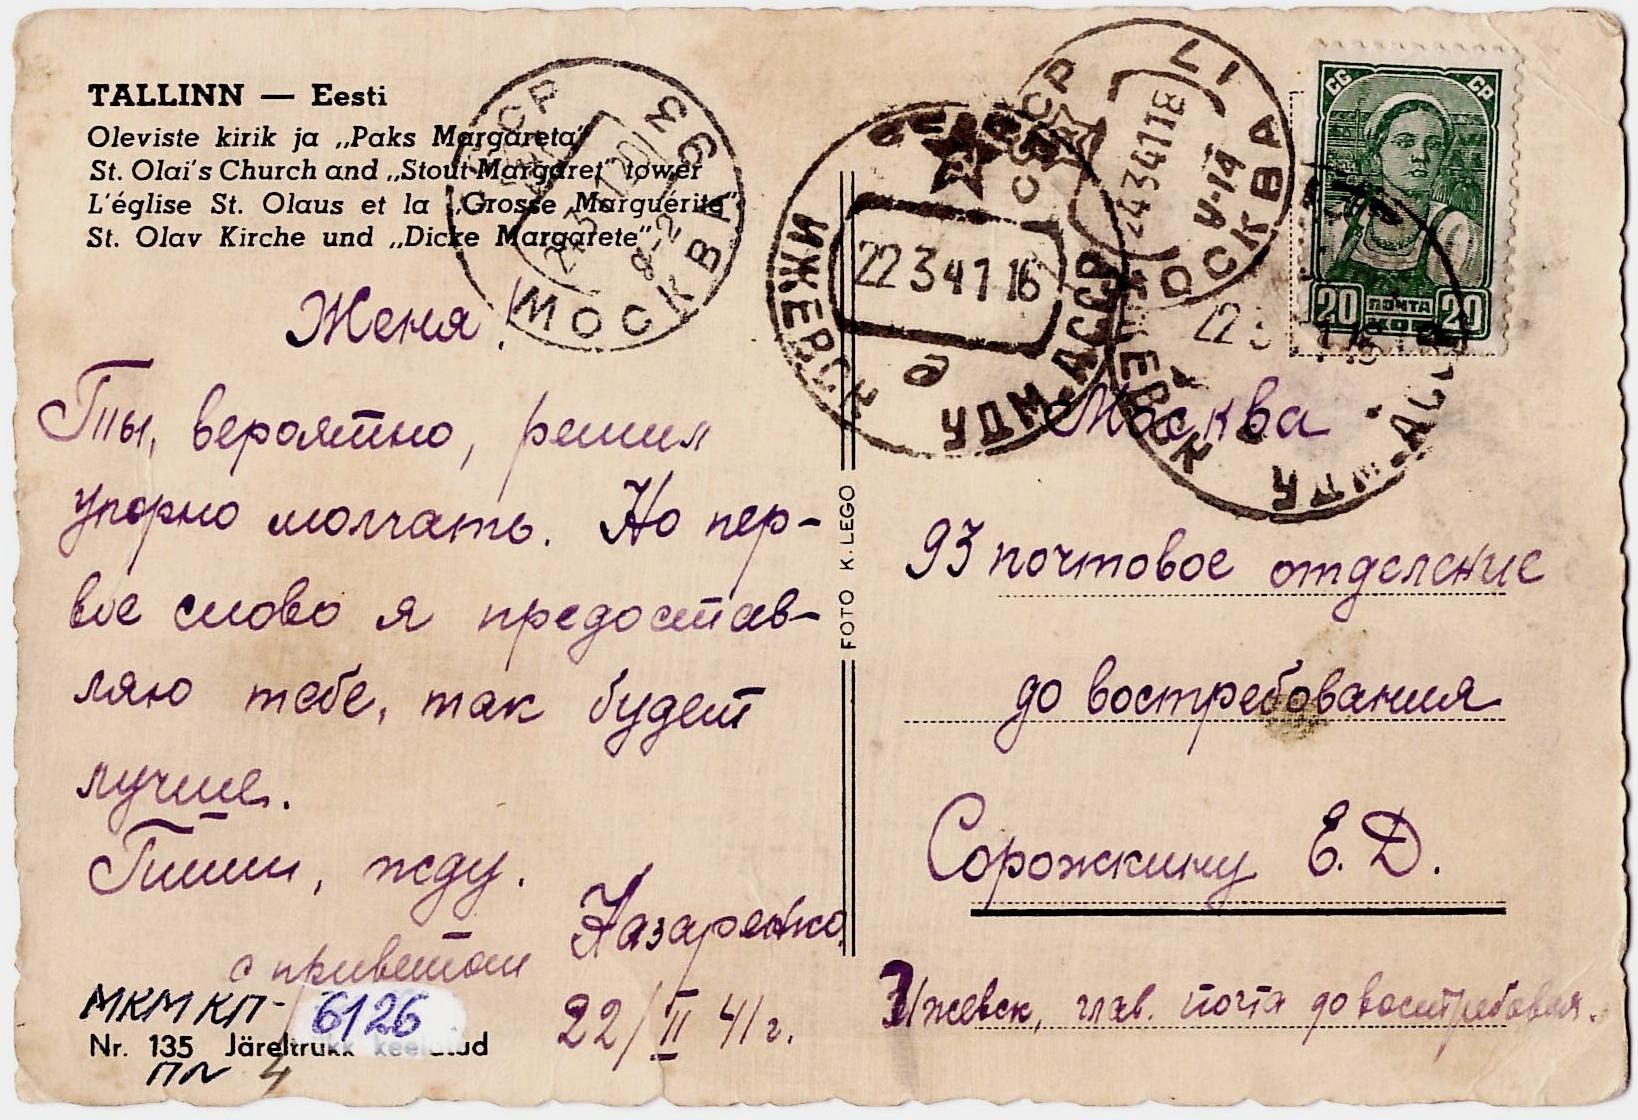 TALLINN — Eesti
Oleviste kirik ja „Paks Margareta"
St. Olai's Church and „Stout Margaret" tower
L'église St. Olaus et la „Grosse Marguérite"
St. Olav Kirche und „Dicke Margarete"
Женя!
Ты, вероятно, решил
упорно молчать. Но пер-
вое слово я предостав-
ляю тебе, так будет
лучше.
Пиши, жду.
с приветом
Назаренко
22/II 41г.
МКМ КП-6126
Nr. 135 Järeltrükk keelatud
ПЛ 4
FOTO K. LEGO
МОСКВА
ИЖЕВСК
22 3 41 16
а
УДМ-АССР
МОСКВА
V-14
ИЖЕВСК
УДМ-АССР
СС СР
20 ПОЧТА 20
КОП
Москва
93 почтовое отделение
до востребования
Сорожкину Е. Д.
Ижевск, глав. почта до востребован.